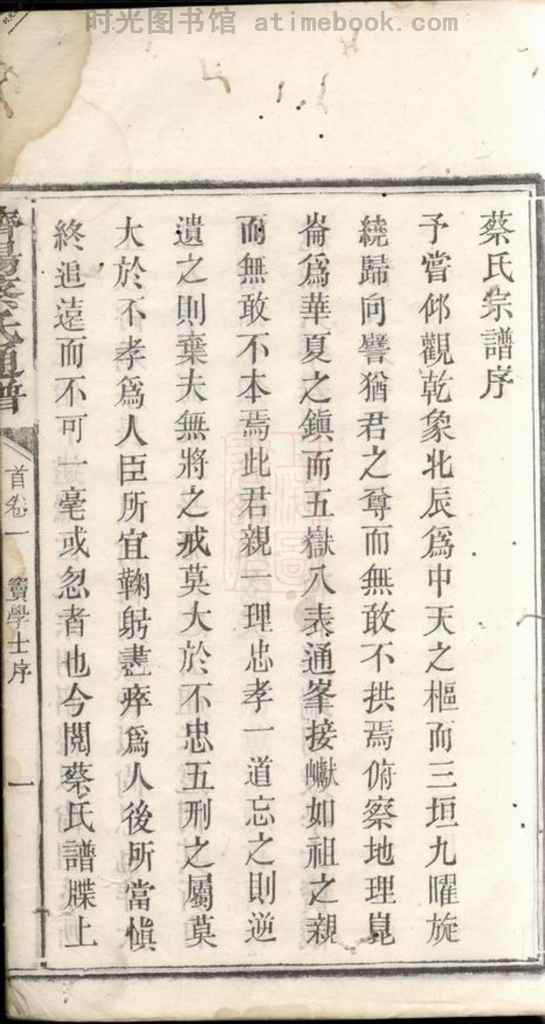 时光图书馆 - atimebook.com
蔡氏宗譜序
予嘗仰觀乾象北辰爲中天之樞而三垣九曜旋
繞歸向譬猶君之尊而無敢不拱焉俯察地理崑
崙爲華夏之鎮而五嶽八表通峯接巘如祖之親
而無敢不本焉此君親一理忠孝一道忘之則逆
遺之則棄夫無將之戒莫大於不忠五刑之屬莫
大於不孝爲人臣所宜鞠躬盡瘁爲人後所當愼
終追遠而不可一毫或忽者也今閲蔡氏譜牒上
濟陽蔡氏通譜
首卷一
竇學士序
一